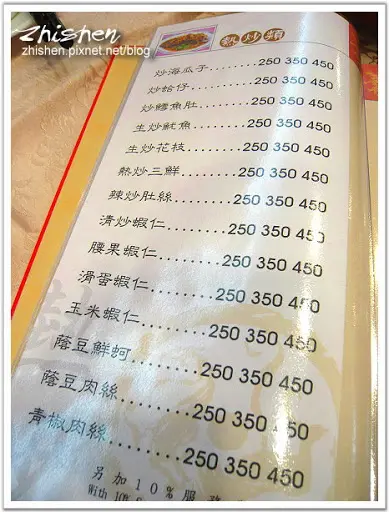 Zhishen
zhishen.pixnet.net/blog
熱炒類
炒海瓜子........250 350 450
炒蛤仔..........250 350 450
炒鱈魚肚........250 350 450
生炒魷魚........250 350 450
生炒花枝........250 350 450
熱炒三鮮........250 350 450
辣炒肚絲........250 350 450
清炒蝦仁........250 350 450
腰果蝦仁........250 350 450
滑蛋蝦仁........250 350 450
玉米蝦仁........250 350 450
蔭豆鮮蚵........250 350 450
蔭豆肉絲........250 350 450
青椒肉絲........250 350 450
另加10%服務
With 10%